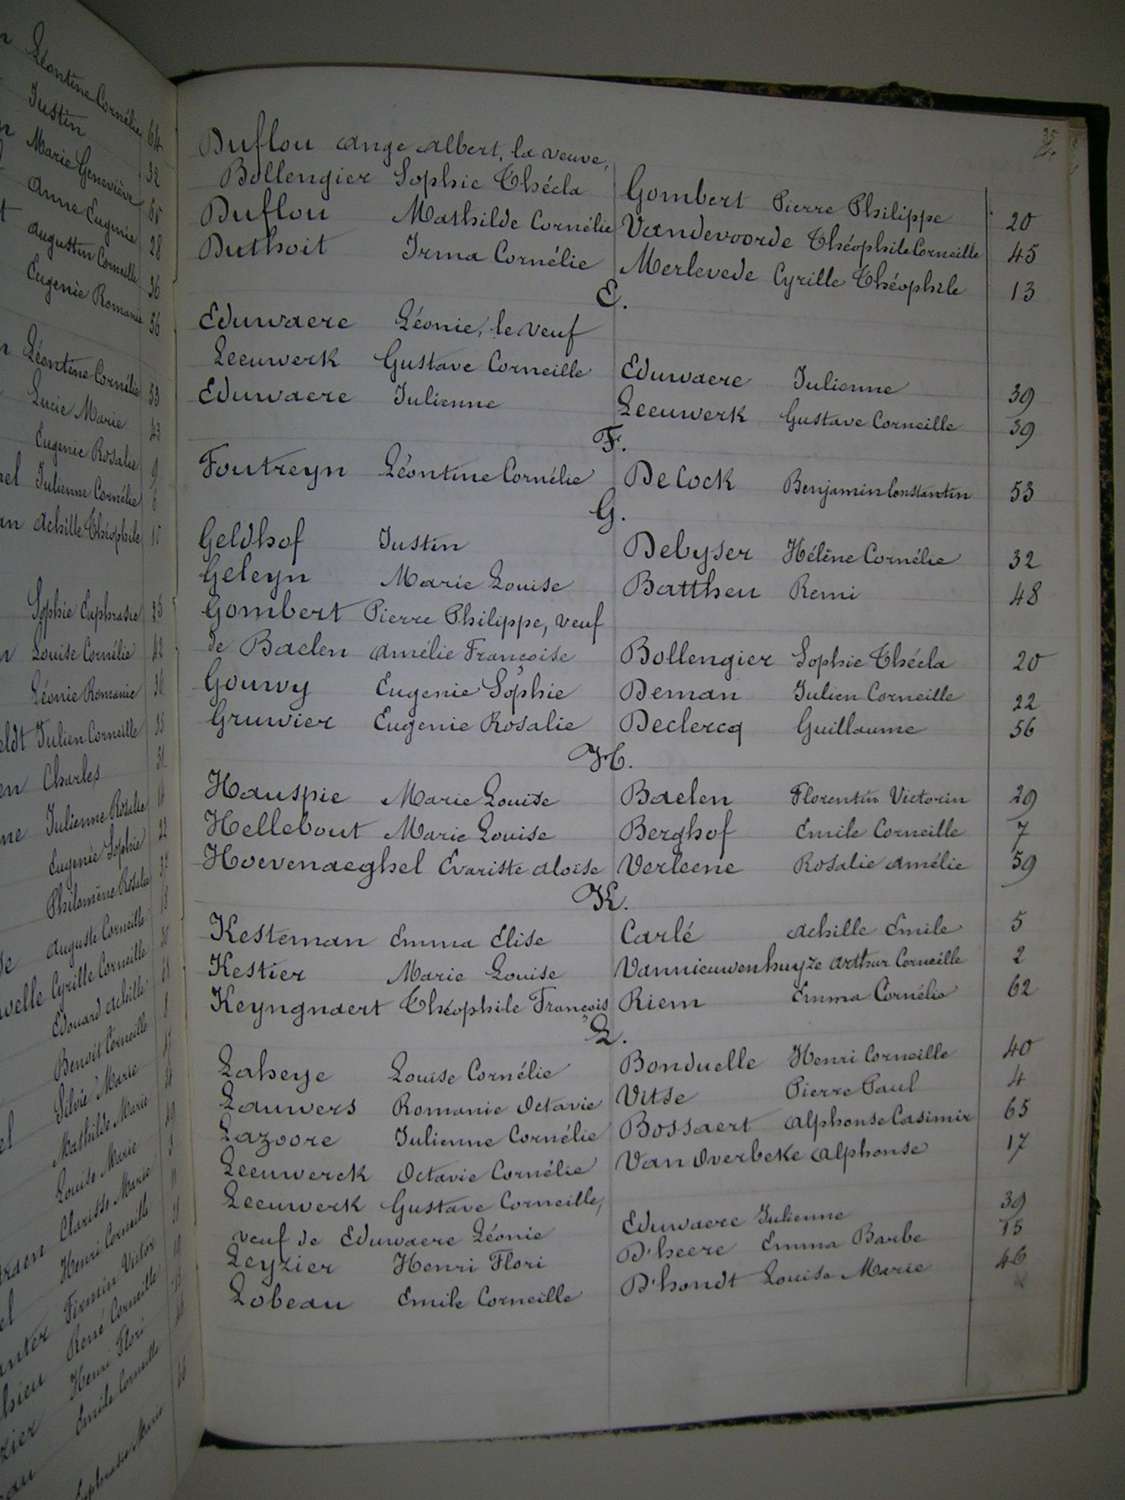 Léontine Cornélie 64
Justin 32
Marie Geneviève 65
Anne Eugénie 28
Augustin Corneille 36
Eugenie Romanie 56
Léontine Cornélie 53
Lucie Marie 23
Eugenie Rosalie 9
Julienne Cornélie 6
Achille Théophile 10
Sophie Euphrasie
Louise Cornélie
Léonie Romanie
Julien Corneille
Charles
Julienne Rosalie
Eugenie Sophie 22
Philomène Rosalie
Auguste Corneille
Cyrille Corneille
Edouard Achille
Benoit Corneille
Silvie Marie
Mathilde Marie
Louise Marie
Clarisse Marie
Henri Corneille
Firmin Victor
René Corneille
Henri Flori
Emile Corneille
Duflou Ange Albert, la veuve,
Bollengier Sophie Thécla Gombert Pierre Philippe 20
Duflou Mathilde Cornélie Vandevoorde Théophile Corneille 45
Duthoit Irma Cornélie Merlevede Cyrille Théophile 13
E.
Eduwaere Léonie, le veuf
Leeuwerk Gustave Corneille Eduwaere Julienne 39
Eduwaere Julienne Leeuwerk Gustave Corneille 39
F.
Foutreyn Léontine Cornélie DeCock Benjamin Constantin 53
G.
Geldhof Justin Debyser Hélène Cornélie 32
Geleyn Marie Louise Battheu Remi 48
Gombert Pierre Philippe, veuf
de Baelen Amélie Françoise Bollengier Sophie Thécla 20
Gouwy Eugenie Sophie Deman Julien Corneille 22
Gruwier Eugenie Rosalie Declercq Guillaume 56
H.
Hauspie Marie Louise Baelen Florentin Victorin 29
Hellebout Marie Louise Berghof Emile Corneille 7
Hoevenaeghel Evariste Aloise Verleene Rosalie Amélie 59
K.
Kesteman Emma Elise Carlé Achille Emile 5
Kestier Marie Louise Vannieuwenhuyze Arthur Corneille 2
Keyngnaert Théophile François Riem Emma Cornélie 62
L.
Laheye Louise Cornélie Bonduelle Henri Corneille 40
Lauwers Romanie Octavie Vitse Pierre Paul 4
Lazoore Julienne Cornélie Bossaert Alphonse Casimir 65
Leeuwerck Octavie Cornélie Van Overbeke Alphonse 17
Leeuwerk Gustave Corneille,
veuf de Eduwaere Léonie Eduwaere Julienne 39
Leyzier Henri Flori D'heere Emma Barbe 15
Lobeau Emile Corneille D'hondt Louise Marie 46